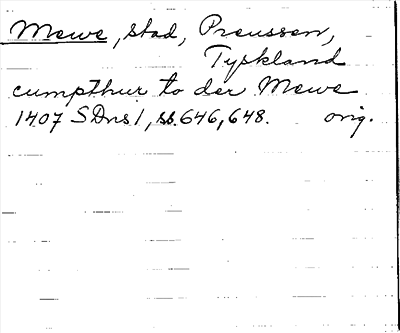 Mewe, stad, Preussen,
Tyskland
cumpthur to der Mewe
1407 SDns 1, ss. 646, 648. orig.